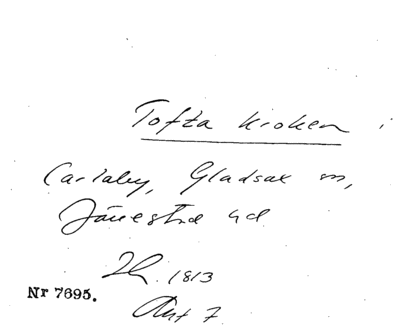 Tofta kroken i
Carlaby, Gladsax sn,
Järrestad hd
1813
Nr 7695.
Akt 7